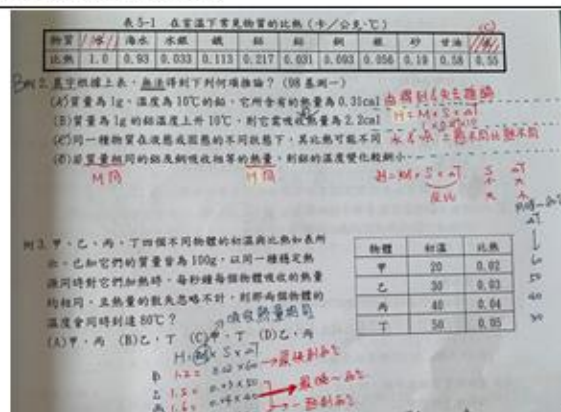 表5-1 在室溫下常見物質的比熱(卡/公克·℃)
物質 水 海水 水銀 鐵 鋁 鉛 銅 銀 砂 甘油 冰
比熱 1.0 0.93 0.033 0.113 0.217 0.031 0.093 0.056 0.19 0.58 0.55
2. 根據上表,無法得到下列何項推論?(98基測一)
(A)質量為1g、溫度為10℃的鉛,它所含有的熱量為0.31cal
(B)質量為1g的鋁溫度上升10℃,則它需吸收熱量為2.2cal
H = M × S × ΔT
(C)同一種物質在液態或固態的不同狀態下,其比熱可能不同
(D)若質量相同的鋁及銅吸收相等的熱量,則鋁的溫度變化較銅小
M同 H同
反比
例3. 甲、乙、丙、丁四個不同物體的初溫與比熱如表所
示,已知它們的質量皆為100g,以同一種穩定熱
源同時對它們加熱時,每秒鐘每個物體吸收的熱量
均相同,且熱量的散失忽略不計,則那兩個物體的
溫度會同時到達80℃?
吸收熱量相同
(A)甲、丙 (B)乙、丁 (C)甲、丁 (D)乙、丙
物體 初溫 比熱
甲 20 0.02
乙 30 0.03
丙 40 0.04
丁 50 0.05
60
50
40
30
甲 1.2 = 0.02 × 60
乙 1.5 = 0.03 × 50
丙 1.6 = 0.04 × 40